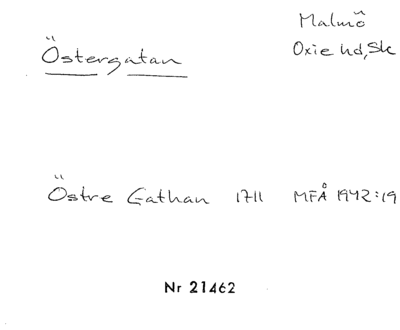 Malmö
Östergatan
Oxie hd, Sk
Östre Gathan 1711 MFÅ 1942:19
Nr 21462